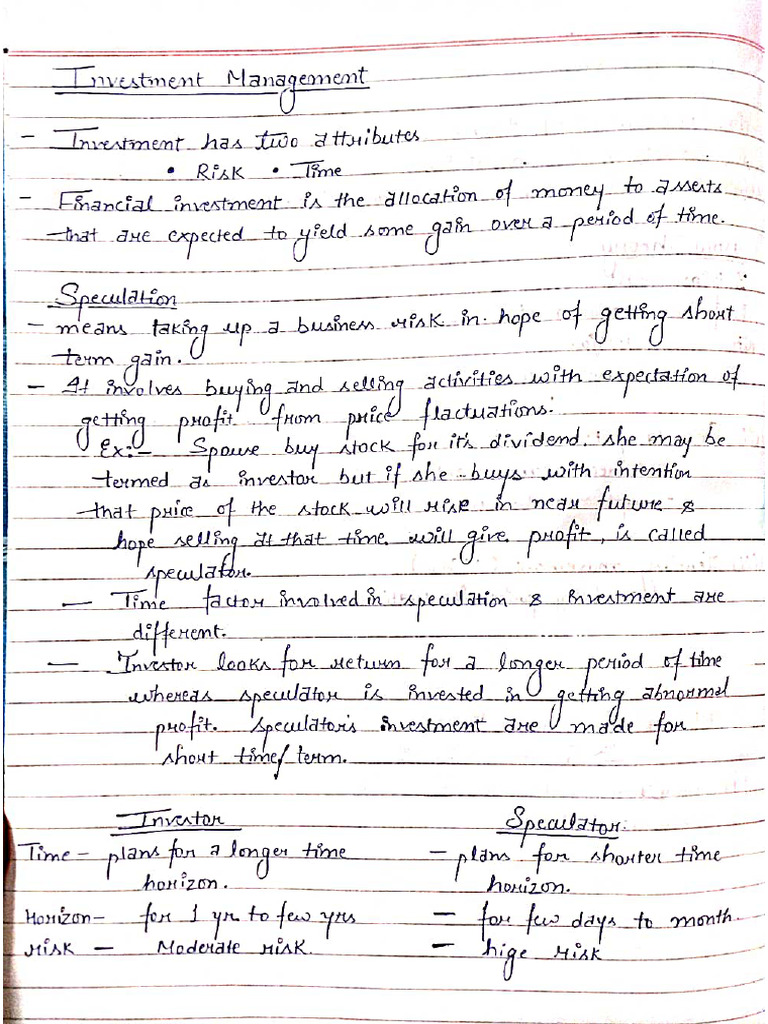 Investment Management
- Investment has two attributes
• Risk • Time
- Financial investment is the allocation of money to asserts
that are expected to yield some gain over a period of time.
Speculation
- means taking up a business risk in hope of getting short
term gain.
- It involves buying and selling activities with expectation of
getting profit from price flactuations.
Ex:- Spouse buy stock for it's dividend. she may be
termed as investor but if she buys with intention
that price of the stock will rise in near future &
hope selling at that time will give profit, is called
speculator.
- Time factor involved in speculation & investment are
different.
- Investor looks for return for a longer period of time
whereas speculator is invested in getting abnormal
profit. speculator's investment are made for
short time/term.
Investor Speculator
Time - plans for a longer time - plans for shorter time
horizon. horizon.
Horizon - for 1 yr to few yrs - for few days to month.
risk - Moderate risk. - hige risk